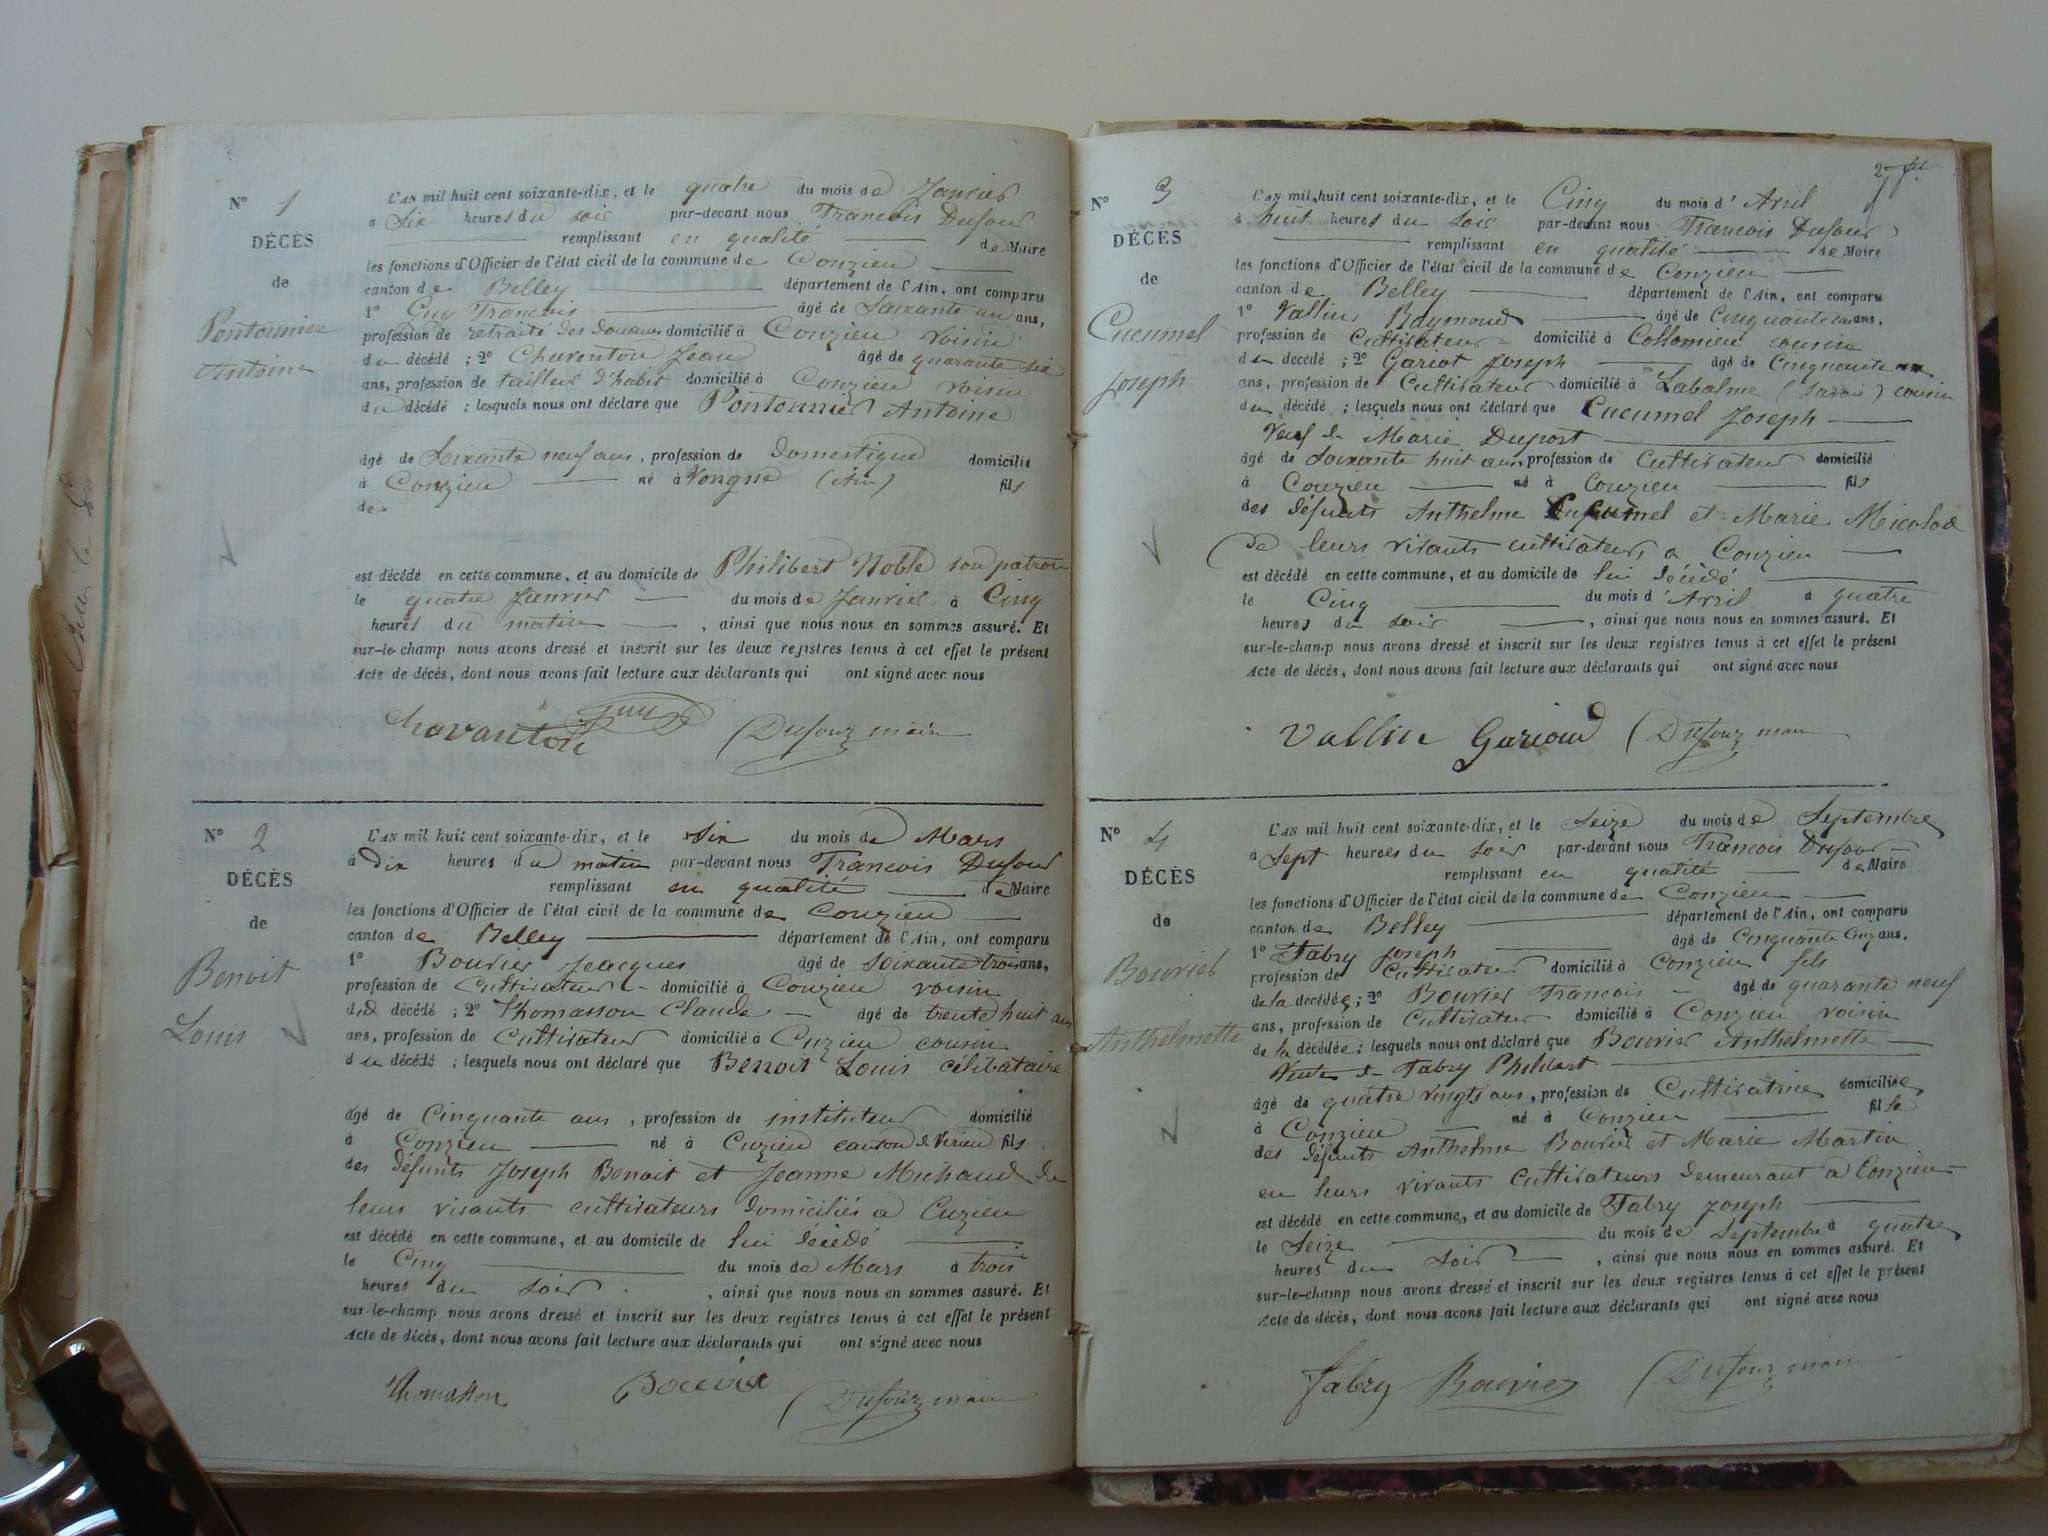 N° 1
DÉCÈS
de
Pontonnier
Antoine
L'AN mil huit cent soixante-dix, et le quatre du mois de Janvier
à Six heures du soir par-devant nous Francois Dufour
remplissant en qualité de Maire
les fonctions d'Officier de l'état civil de la commune de Conzieu
canton de Belley département de l'Ain, ont comparu
1° Guy Francois âgé de Soixante un ans,
profession de retraité des douanes domicilié à Conzieu voisin
du décédé ; 2° Charenton Jean âgé de quarante six
ans, profession de tailleur d'habit domicilié à Conzieu voisin
du décédé ; lesquels nous ont déclaré que Pontonnier Antoine
âgé de Soixante neuf ans, profession de domestique domicilié
à Conzieu né à Vongne (Ain) fils
de
est décédé en cette commune, et au domicile de Philibert Noble son patron
le quatre Janvier du mois de Janvier à Cinq
heures du matin, ainsi que nous nous en sommes assuré. Et
sur-le-champ nous avons dressé et inscrit sur les deux registres tenus à cet effet le présent
Acte de décès, dont nous avons fait lecture aux déclarants qui ont signé avec nous
Chavanton Guy Dufour maire
N° 2
DÉCÈS
de
Benoit
Louis
L'AN mil huit cent soixante-dix, et le Six du mois de Mars
à Dix heures du matin par-devant nous Francois Dufour
remplissant en qualité de Maire
les fonctions d'Officier de l'état civil de la commune de Conzieu
canton de Belley département de l'Ain, ont comparu
1° Bouvier Jeacques âgé de soixante trois ans,
profession de Cultivateur domicilié à Conzieu voisin
du décédé ; 2° Thomasson Claude âgé de trente huit ans
ans, profession de Cultivateur domicilié à Cuzieu cousin
du décédé ; lesquels nous ont déclaré que Benoit Louis célibataire
âgé de Cinquante ans, profession de instituteur domicilié
à Conzieu né à Cuzieu canton de Virieu fils
des défunts Joseph Benoit et Jeanne Michaud de
leurs vivants cultivateurs domiciliés a Cuzieu
est décédé en cette commune, et au domicile de lui décédé
le Cinq du mois de Mars à trois
heures du soir, ainsi que nous nous en sommes assuré. Et
sur-le-champ nous avons dressé et inscrit sur les deux registres tenus à cet effet le présent
Acte de décès, dont nous avons fait lecture aux déclarants qui ont signé avec nous
Thomasson Bouvier Dufour maire
2
N° 3
DÉCÈS
de
Cucumel
Joseph
L'AN mil huit cent soixante-dix, et le Cinq du mois d'Avril
à huit heures du soir par-devant nous Francois Dufour
remplissant en qualité de Maire
les fonctions d'Officier de l'état civil de la commune de Conzieu
canton de Belley département de l'Ain, ont comparu
1° Vallin, Raymond âgé de cinquante ans,
profession de Cultivateur domicilié à Collomieu cousin
du décédé ; 2° Gariot Joseph âgé de Cinquante
ans, profession de Cultivateur domicilié à Labalme (Savoie) cousin
du décédé ; lesquels nous ont déclaré que Cucumel Joseph
Veuf de Marie Duport
âgé de soixante huit ans, profession de Cultivateur domicilié
à Conzieu né à Conzieu fils
des défunts Anthelme Cucumel et Marie Micolod
de leurs vivants cultivateurs a Conzieu
est décédé en cette commune, et au domicile de lui décédé
le Cinq du mois d'Avril à quatre
heures du soir, ainsi que nous nous en sommes assuré. Et
sur-le-champ nous avons dressé et inscrit sur les deux registres tenus à cet effet le présent
Acte de décès, dont nous avons fait lecture aux déclarants qui ont signé avec nous
Vallin Garioud Dufour maire
N° 4
DÉCÈS
de
Bouvier
Anthelmette
L'AN mil huit cent soixante-dix, et le Seize du mois de Septembre
à Sept heures du soir par-devant nous Francois Dufour
remplissant en qualité de Maire
les fonctions d'Officier de l'état civil de la commune de Conzieu
canton de Belley département de l'Ain, ont comparu
1° Fabry Joseph âgé de Cinquante Cinq ans,
profession de Cultivateur domicilié à Conzieu fils
de la decédée ; 2° Bouvier Francois âgé de quarante neuf
ans, profession de Cultivateur domicilié à Conzieu voisin
de la décédée ; lesquels nous ont déclaré que Bouvier Anthelmette
Veuve de Fabry Philibert
âgé de quatre vingts ans, profession de Cultivatrice domiciliée
à Conzieu né à Conzieu fille
des défunts Anthelme Bouvier et Marie Martin
en leurs vivants Cultivateurs demeurant à Conzieu
est décédé en cette commune, et au domicile de Fabry Joseph
le Seize du mois de Septembre à quatre
heures du soir, ainsi que nous nous en sommes assuré. Et
sur-le-champ nous avons dressé et inscrit sur les deux registres tenus à cet effet le présent
Acte de décès, dont nous avons fait lecture aux déclarants qui ont signé avec nous
Fabry Bouvier Dufour maire